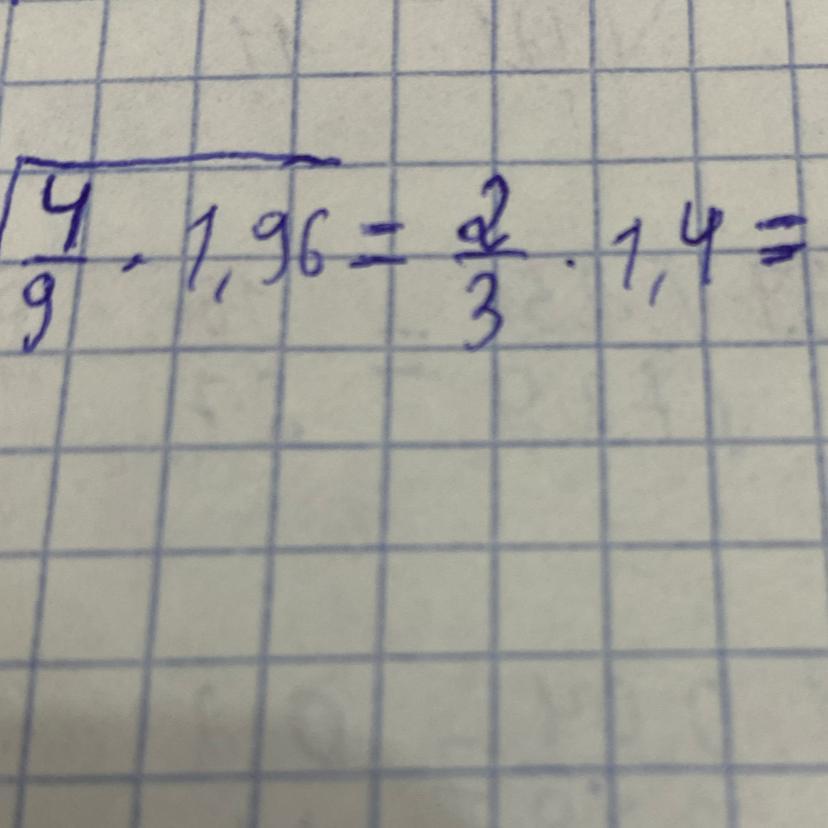 √(4/9 · 1,96) = 2/3 · 1,4 =